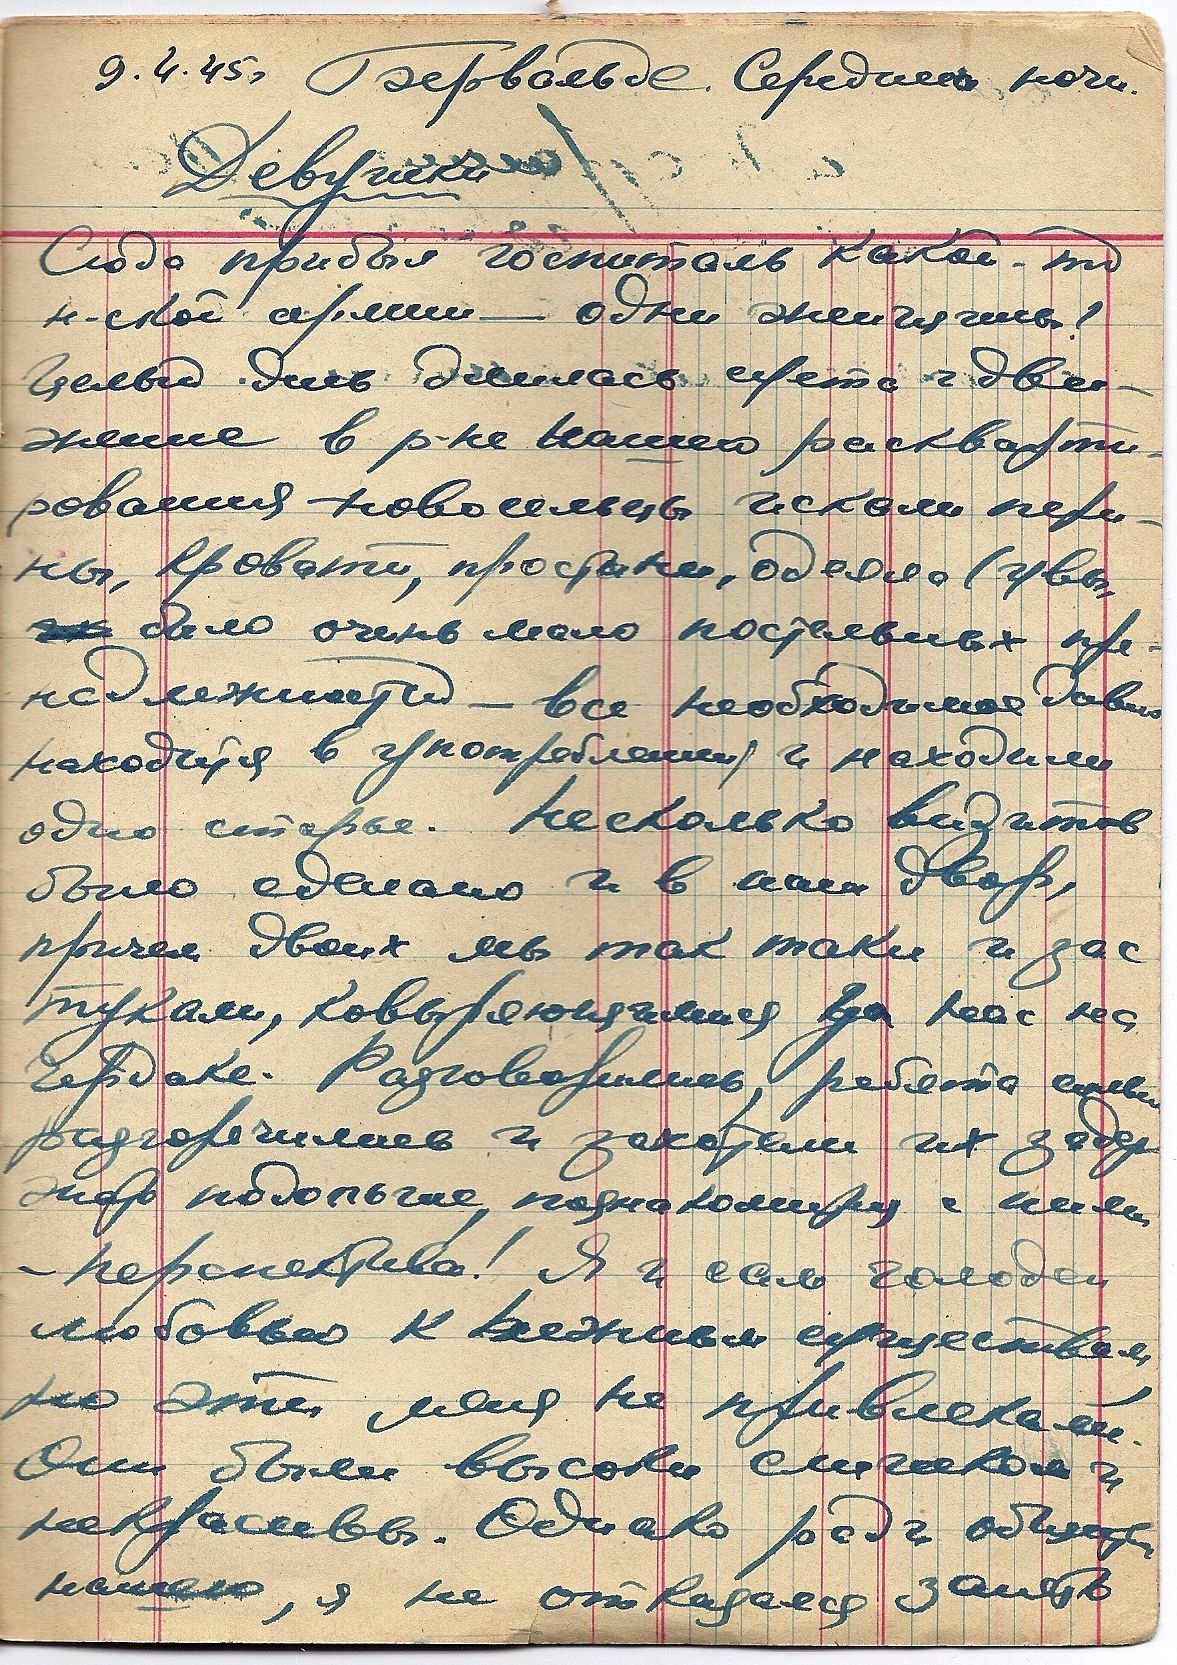 9.4.45. Бэрвальде. Середина ночи.
Девушки
Сюда прибыл госпиталь какой-то
н-ской армии — одни женщины!
Целый день длилась суета и дви-
жение в р-не нашего раскварти-
рования – новосельцы искали пери-
ны, кровати, простыни, одеяла (увы,
было очень мало постельных при-
надлежностей – все необходимое давно
находится в употреблении) и находили
одно старье. Несколько визитов
было сделано и в наш двор,
причем двоих мы так таки и зас
тукали, ковыряющимися у нас на
чердаке. Разговорились, ребята
разгорячились и захотели их задер
жать подольше, познакомиться с ними
– перспектива! Я и сам голоден
любовью к нежным существам
но эти меня не привлекали.
Они были высоки слишком и
некрасивы. Однако ради общества
нашего, я не отказался занять